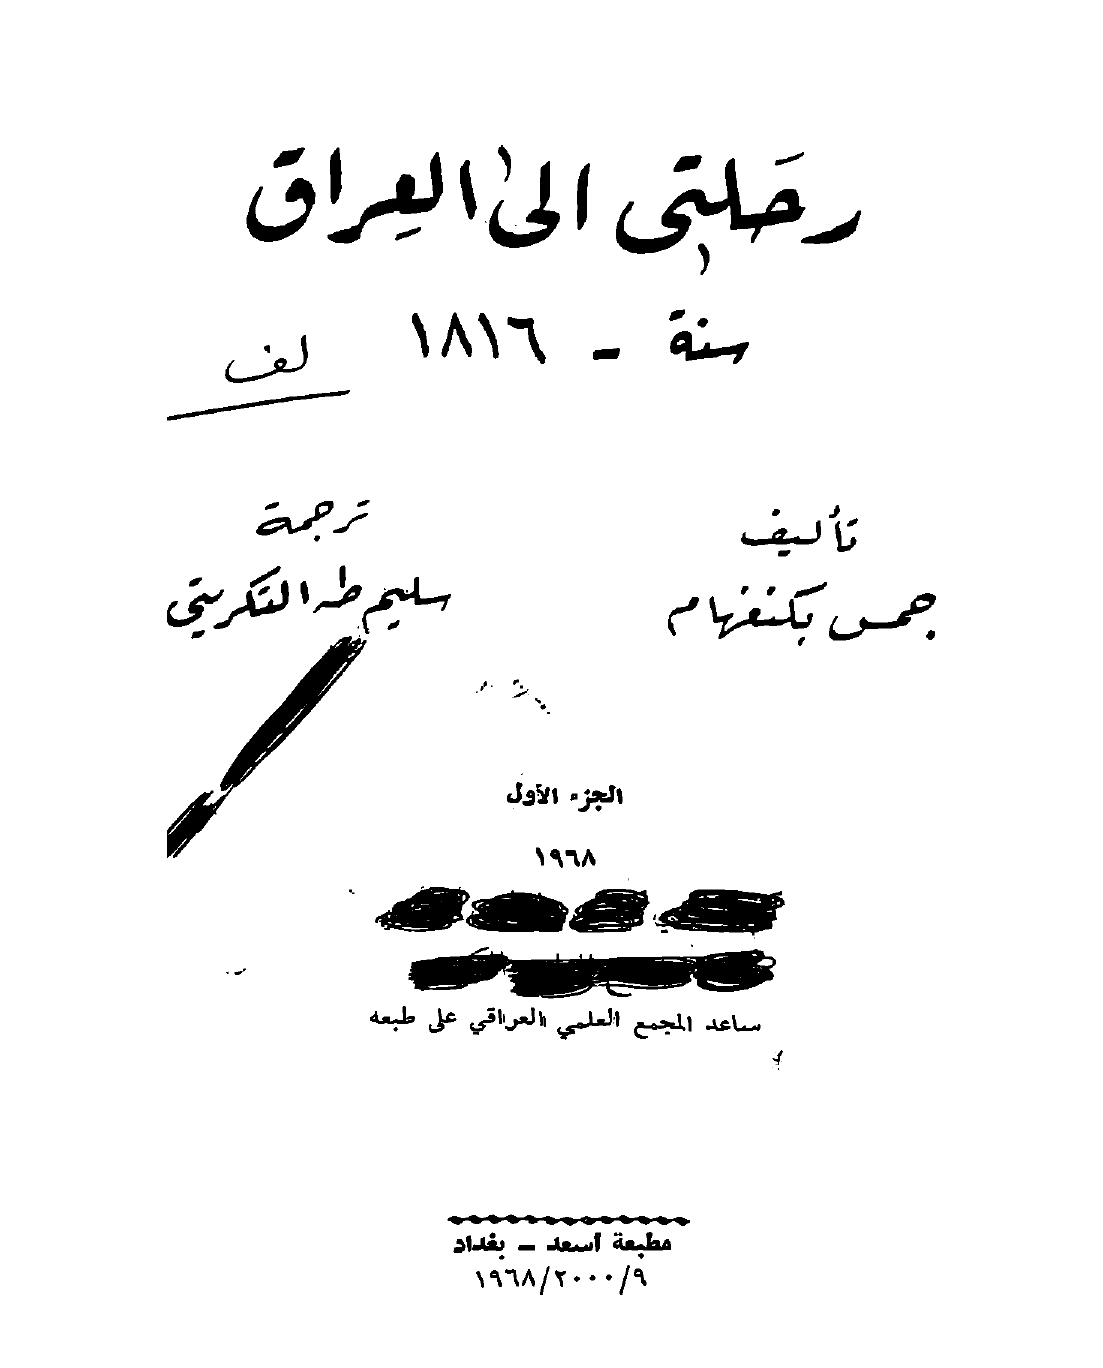 رحلتي الى العراق
سنة - ١٨١٦
لف
تأليف
جمس بكنغهام
ترجمة
سليم طه التكريتي
الجزء الأول
١٩٦٨
ساعد المجمع العلمي العراقي على طبعه
مطبعة أسعد - بغداد
١٩٦٨/٢٠٠٠/٩